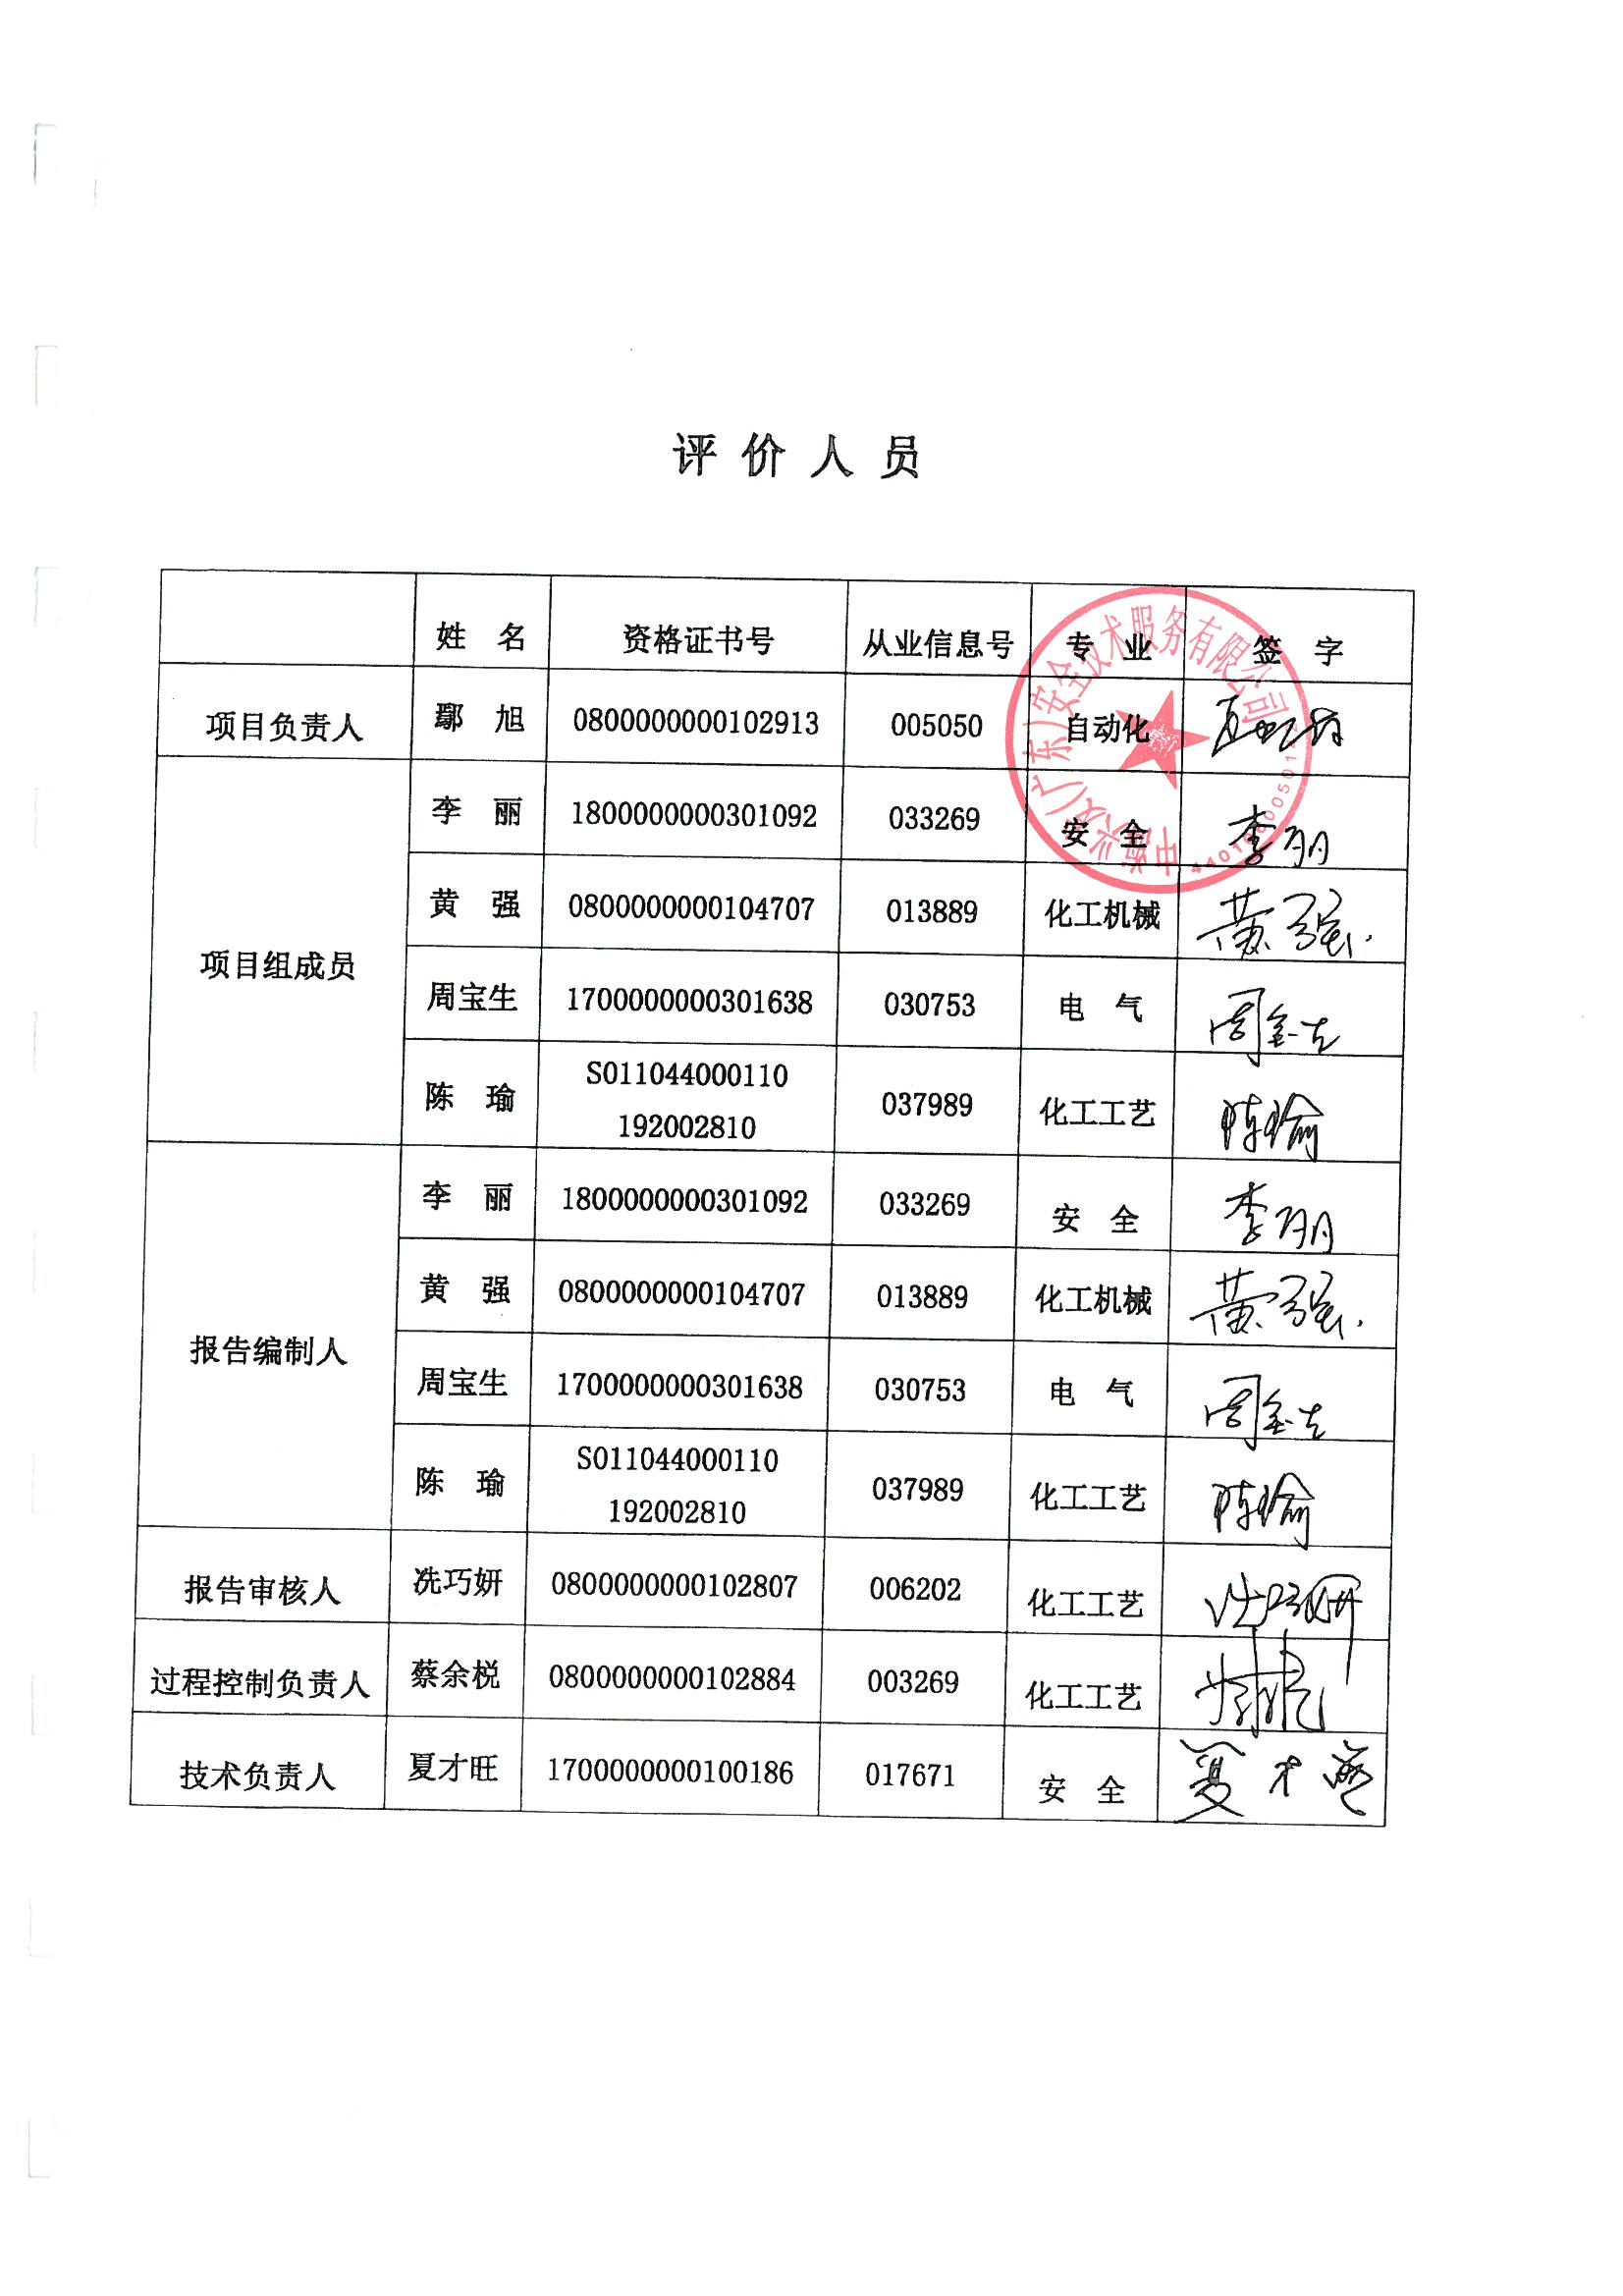 评价人员
姓 名 资格证书号 从业信息号 专 业 签 字
项目负责人 鄢 旭 0800000000102913 005050 自动化
项目组成员 李 丽 1800000000301092 033269 安 全 李丽
黄 强 0800000000104707 013889 化工机械 黄强
周宝生 1700000000301638 030753 电 气 周宝生
陈 瑜 S011044000110 192002810 037989 化工工艺 陈瑜
报告编制人 李 丽 1800000000301092 033269 安 全 李丽
黄 强 0800000000104707 013889 化工机械 黄强
周宝生 1700000000301638 030753 电 气 周宝生
陈 瑜 S011044000110 192002810 037989 化工工艺 陈瑜
报告审核人 冼巧妍 0800000000102807 006202 化工工艺 冼巧妍
过程控制负责人 蔡余棁 0800000000102884 003269 化工工艺
技术负责人 夏才旺 1700000000100186 017671 安 全 夏才旺
(广东)安全技术服务有限公司